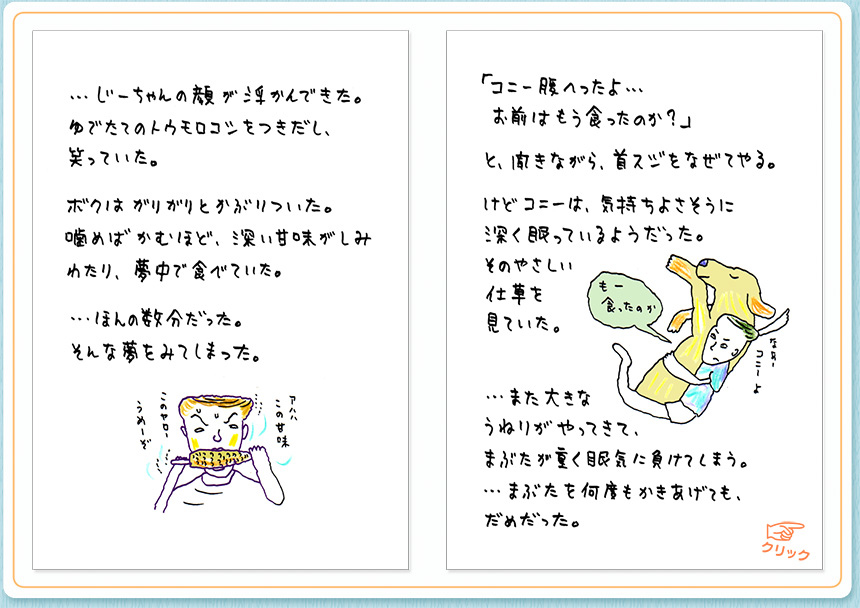 …じーちゃんの顔が浮かんできた。
ゆでたてのトウモロコシをつきだし、
笑っていた。
ボクはがりがりとかぶりついた。
噛めばかむほど、深い甘味がしみ
わたり、夢中で食べていた。
…ほんの数分だった。
そんな夢をみてしまった。
アハハ
この甘味
このヤロー
うめーぞ
「コニー腹へったよ…
お前はもう食ったのか?」
と、聞きながら、首スジをなぜてやる。
けどコニーは、気持ちよさそうに
深く眠っているようだった。
そのやさしい
仕草を
見ていた。
もー
食ったのか
なあー
コニーよ
…また大きな
うねりがやってきて、
まぶたが重く眠気に負けてしまう。
…まぶたを何度もかきあげても、
だめだった。
クリック